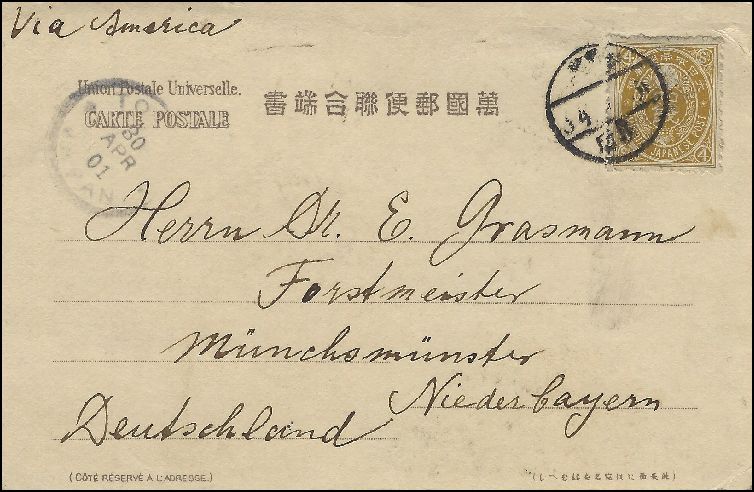 Via America
Union Postale Universelle.
CARTE POSTALE
書端合聯便郵國萬
30
APR
01
JAPANESE POST
Herrn Dr. E. Grasmann
Forstmeister
Münchsmünster
Niederbayern
Deutschland
(CÔTÉ RÉSERVÉ A L'ADRESSE.)